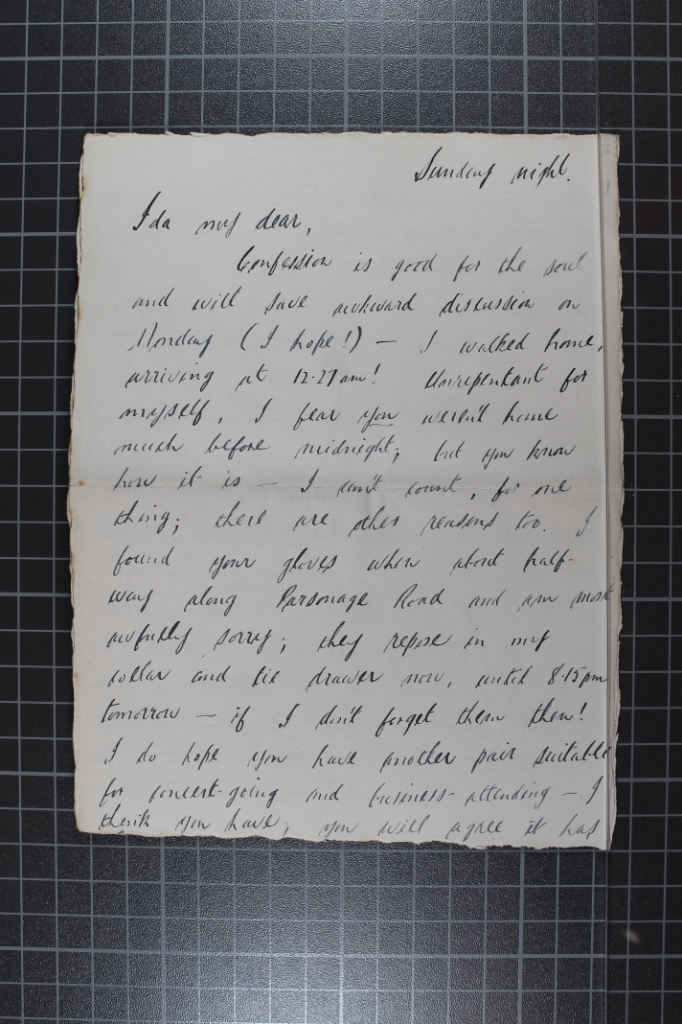 Sunday night.
Ida my dear,
Confession is good for the soul
and will save awkward discussion on
Monday (I hope!) — I walked home,
arriving at 12.27am! Unrepentant for
myself, I fear you weren't home
much before midnight; but you know
how it is — I can't count, for one
thing; there are other reasons too. I
found your gloves when about half-
way along Parsonage Road and am most
awfully sorry; they repose in my
collar and tie drawer now, until 8.15pm
tomorrow — if I don't forget them then!
I do hope you have another pair suitable
for concert-going and business-attending — I
think you have; you will agree it has